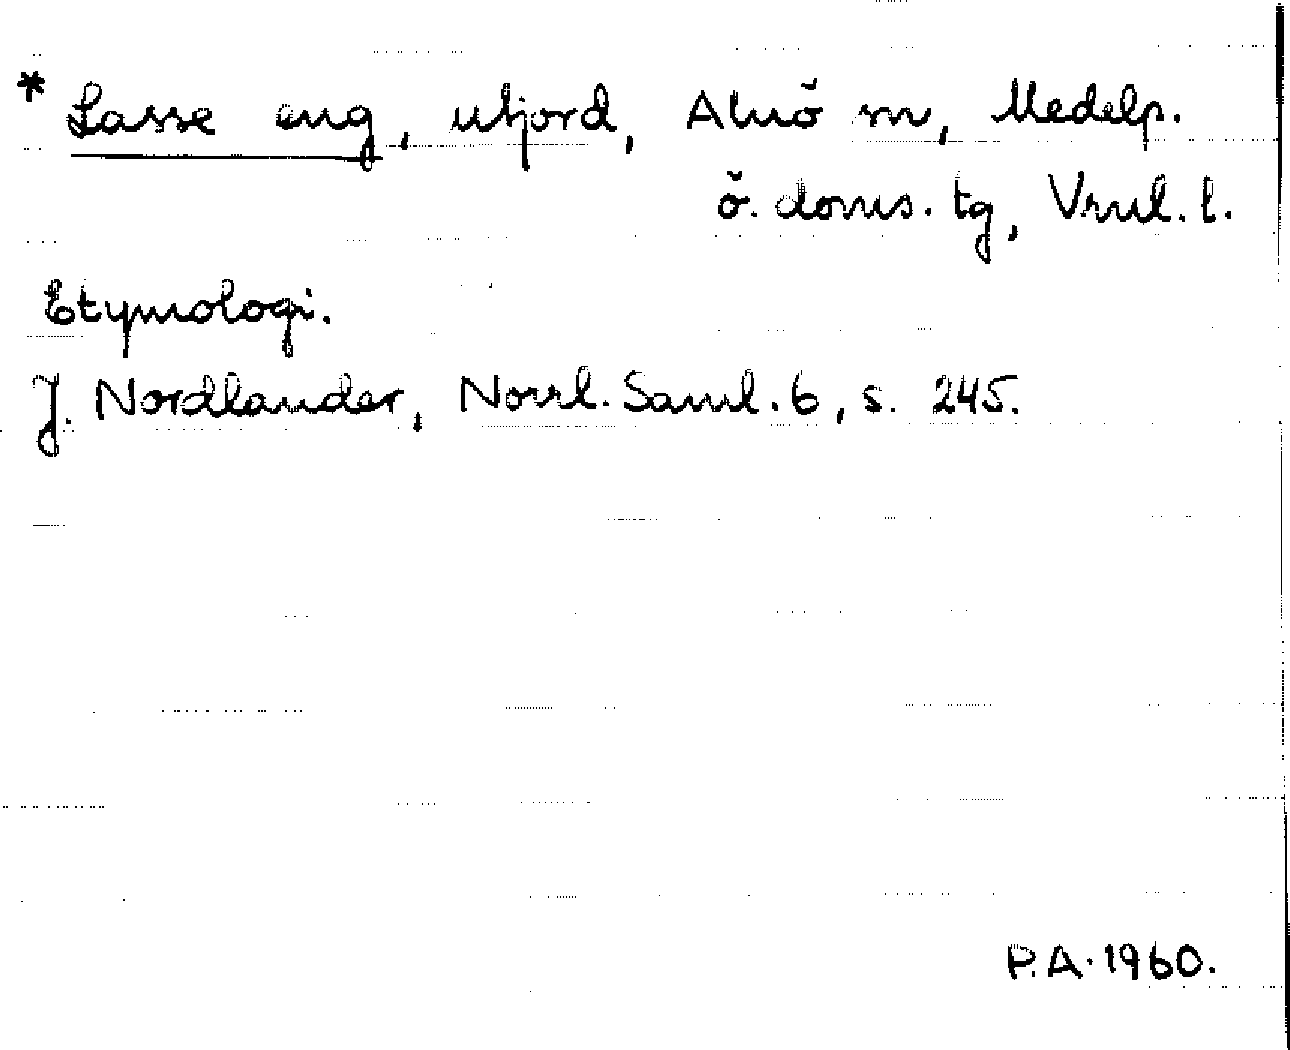 * Lasse eng, utjord, Alnö sn, Medelp.
ö. doms. tg, Vrnl. l.
Etymologi.
J. Nordlander, Norrl. Saml. 6, s. 245.
P.A. 1960.